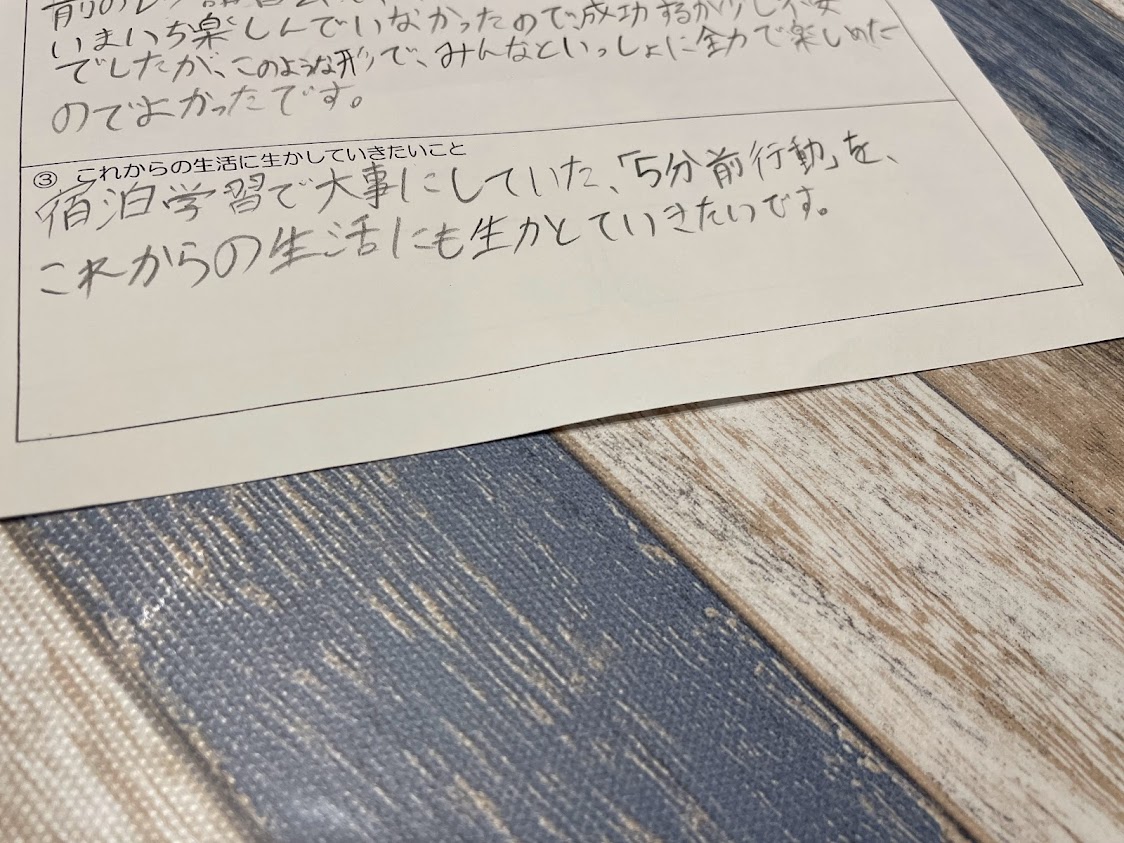 前のレク
いまいち楽しんでいなかったので、成功するか少し不安
でしたが、このような形で、みんなといっしょに全力で楽しめた
のでよかったです。
③ これからの生活に生かしていきたいこと
宿泊学習で大事にしていた、「5分前行動」を、
これからの生活にも生かとていきたいです。